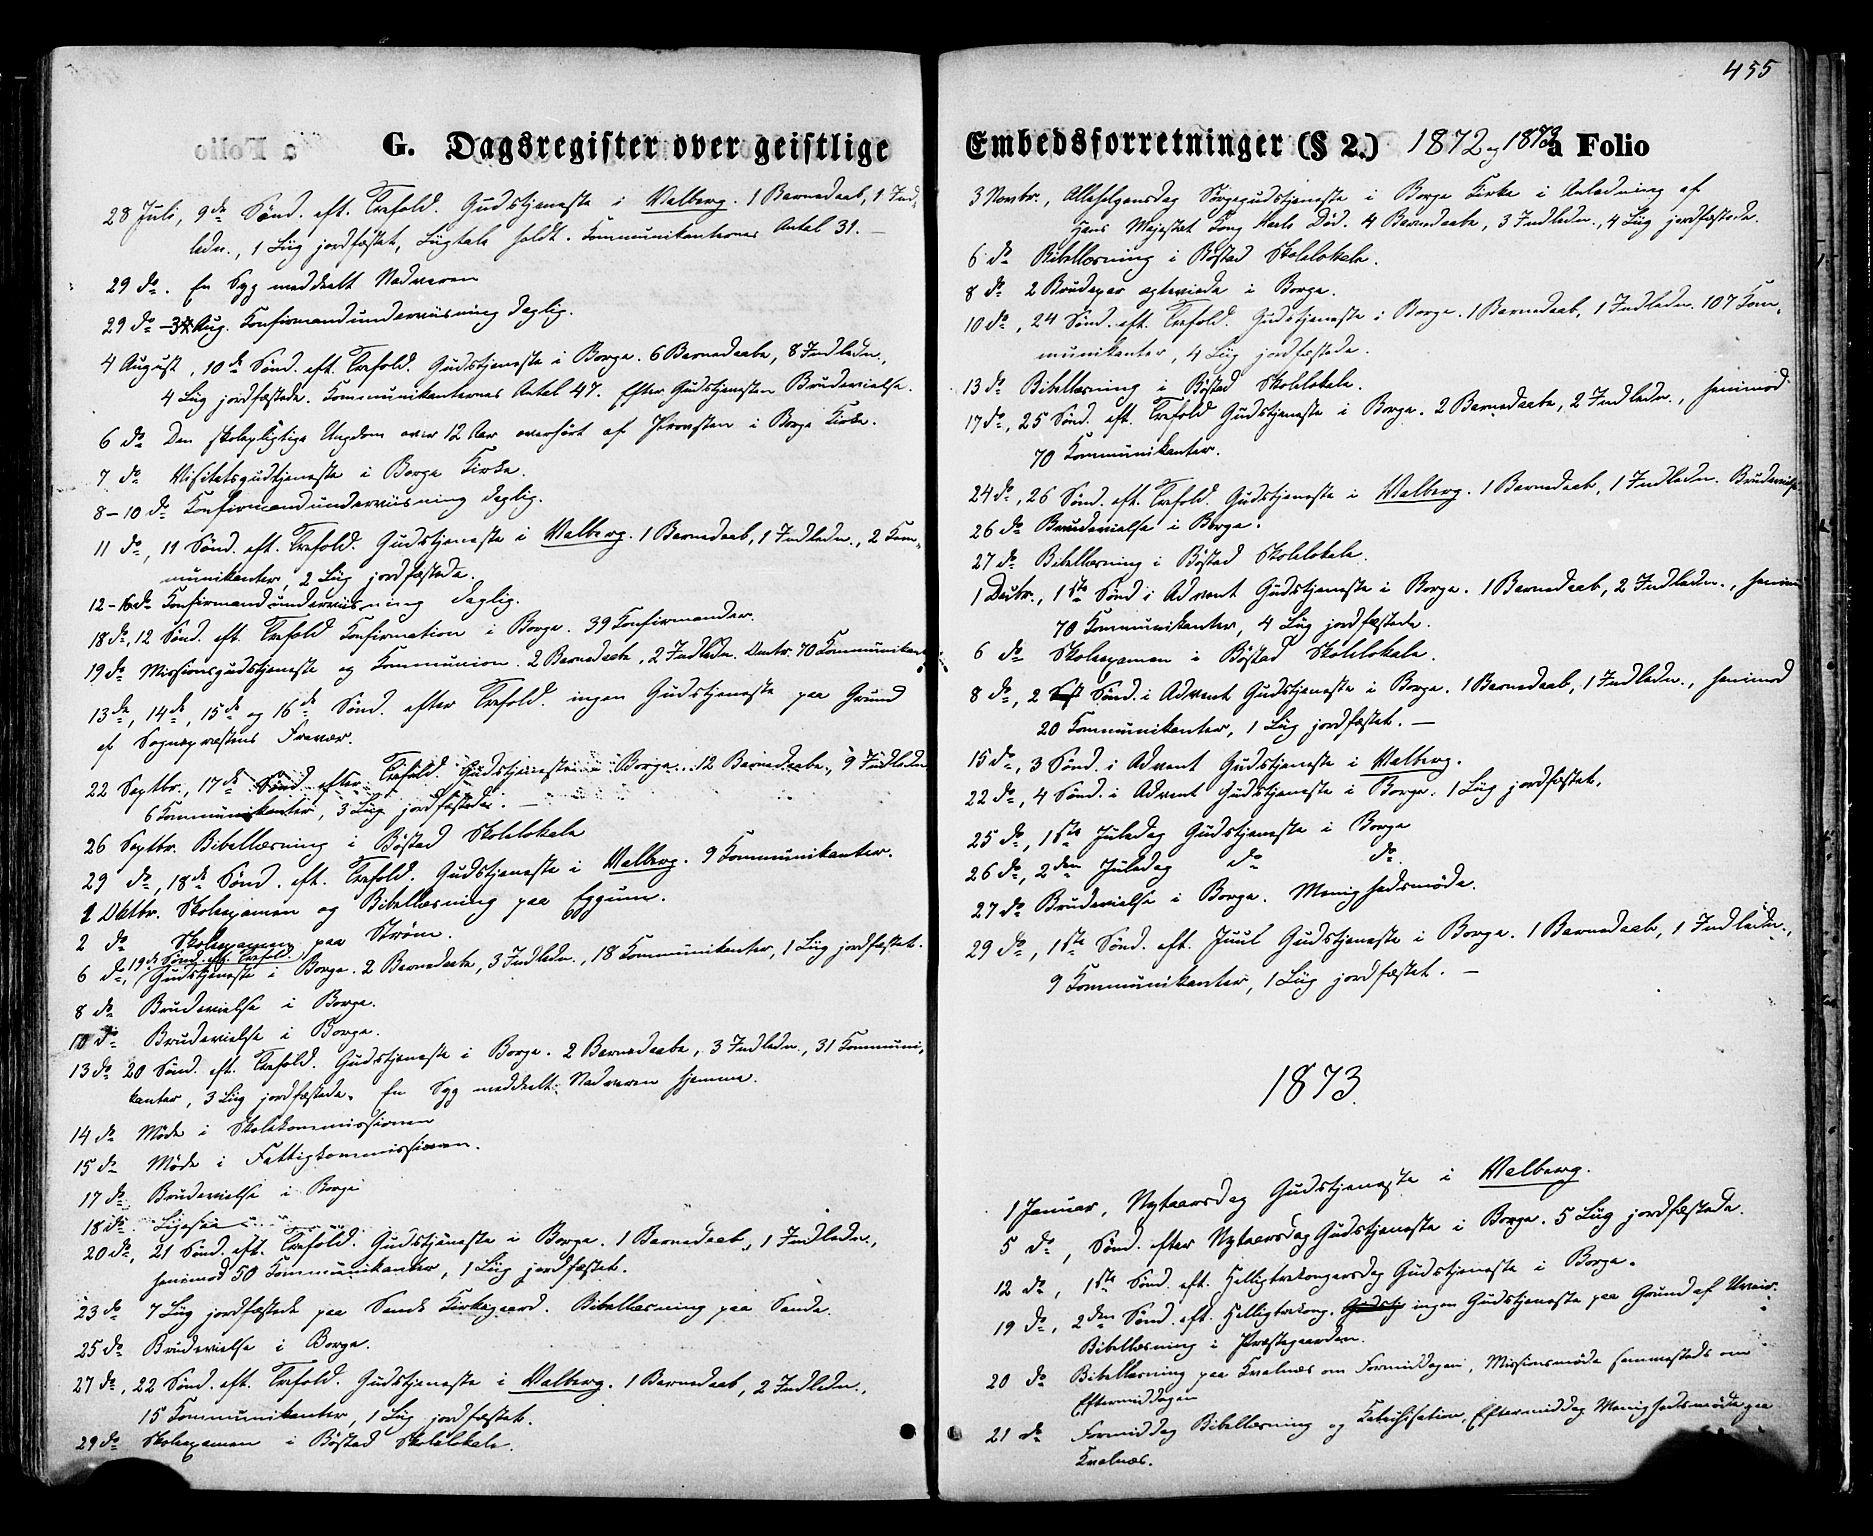 G. Dagsregister over geistlige
28 Juli, 9de Sønd. eft. Trefold. Gudstjeneste i Valberg. 1 Barnedaab, 1 Ind,
ledn., 1 Liig jordfæstet, Liigtale holdt. Kommunikanternes Antal 31. —
29 do. En Syg meddeelt Nadveren
29 do - 3 Aug. Konfirmandunderviisning daglig.
4 August, 10de Sønd. eft. Trefold. Gudstjeneste i Borge. 6 Barnedaabe, 8 Indledn.,
4 Liig jordfæstede. Kommunikanternes Antal 47. Efter Gudstjenesten Brudevielse.
6 do Den skolepligtige Ungdom over 12 Aar overhørt af Provsten i Borge Kirke.
7 do Visitatsgudstjeneste i Borge Kirke.
8-10 do Konfirmandunderviisning daglig.
11 do, 11 Sønd. eft. Trefold. Gudstjeneste i Valberg. 1 Barnedaab, 1 Indledn., 2 Kom,
munikanter, 2 Liig jordfæstede.
12-16 do Konfirmandunderviisning daglig.
18 do, 12 Sønd. eft. Trefold Konfirmation i Borge. 39 Konfirmander.
19 do Missionsgudstjeneste og Kommunion. 2 Barnedaabe, 2 Indledn. 70 Kommunikant
13de, 14de, 15de og 16de Sønd. efter Trefold. ingen Gudstjeneste paa Grund
af Sognepræstens Fravær.
22 Septbr., 17de Sønd. efter Trefold. Gudstjeneste i Borge. 12 Barnedaabe, 9 Indledn
6 Kommunikanter, 3 Liig jordfæstede. —
26 Septbr. Bibellæsning i Bøstad Skolelokale
29 do, 18de Sønd. eft. Trefold. Gudstjeneste i Valberg. 9 Kommunikanter.
1 Oktbr. Skoleexamen og Bibellæsning paa Eggum.
2 do Skoleexamen paa Strøm.
19de Sønd. eft. Trefold.
6 do, Gudstjeneste i Borge. 2 Barnedaabe, 3 Indledn., 18 Kommunikanter, 1 Liig jordfæstet.
8 do Brudevielse i Borge.
10 do Brudevielse i Borge.
13 do 20 Sønd. eft. Trefold. Gudstjeneste i Borge. 2 Barnedaabe, 3 Indledn., 31 Kommuni,
kanter, 3 Liig jordfæstede. En Syg meddeelt Nadveren hjemme.
14 do Møde i Skolekommissionen
15 do Møde i Fattigkommissionen.
17 do Brudevielse i Borge
18 do
20 do, 21 Sønd. eft. Trefold. Gudstjeneste i Borge. 1 Barnedaab, 1 Indledn.,
henimod 50 Kommunikanter, 1 Liig jordfæstet.
23 do 7 Liig jordfæstede paa Sands Kirkegaard. Bibellæsning paa Sande.
25 do Brudevielse i Borge.
27 do, 22 Sønd. eft. Trefold. Gudstjeneste i Valberg. 1 Barnedaab, 2 Indledn.,
15 Kommunikanter, 1 Liig jordfæstet.
29 do Skoleexamen i Bøstad Skolelokale.
455
Embedsforretninger (§ 2.) 1872 og 1873 a Folio
3 Novbr., Allehelgensdag Sørgegudstjeneste i Borge Kirke i Anledning af
Hans Majestæt Kong Karls Død. 4 Barnedaabe, 3 Indledn., 4 Liig jordfæstede.
6 do Bibellæsning i Bøstad Skolelokale.
8 do 2 Brudepar ægteviede i Borge.
10 do, 24 Sønd. eft. Trefold. Gudstjeneste i Borge. 1 Barnedaab, 1 Indledn. 107 Kom,
munikanter, 4 Liig jordfæstede.
13 do Bibellæsning i Bøstad Skolelokale.
17 do, 25 Sønd. eft. Trefold Gudstjeneste i Borge. 2 Barnedaabe, 2 Indledn., henimod
70 Kommunikanter.
24 do, 26 Sønd. eft. Trefold. Gudstjeneste i Valberg. 1 Barnedaab, 1 Indledn. Brudevielse
26 do Brudevielse i Borge.
27 do Bibellæsning i Bøstad Skolelokale.
1 Decbr., 1ste Sønd i Advent Gudstjeneste i Borge. 1 Barnedaab, 2 Indledn., henim
70 Kommunikanter, 4 Liig jordfæstede.
6 do Skoleexamen i Bøstad Skolelokale.
8 do, 2 Sønd. i Advent Gudstjeneste i Borge. 1 Barnedaab, 1 Indledn., henimod
20 Kommunikanter, 1 Liig jordfæstet. —
15 do, 3 Sønd. i Advent Gudstjeneste i Valberg.
22 do, 4 Sønd. i Advent Gudstjeneste i Borge. 1 Liig jordfæstet.
25 do, 1ste Juledag Gudstjeneste i Borge
26 do, 2den Juledag do do
27 do Brudevielse i Borge. Menighedsmøde.
29 do, 1ste Sønd. eft. Juul Gudstjeneste i Borge. 1 Barnedaab, 1 Indledn.,
9 Kommunikanter, 1 Liig jordfæstet. —
1873.
1 Januar, Nytaarsdag Gudstjeneste i Valberg.
5 do, Sønd. efter Nytaarsdag Gudstjeneste i Borge. 5 Liig jordfæstede.
12 do, 1ste Sønd. eft. Helligtrekongersdag Gudstjeneste i Borge.
19 do, 2den Sønd. eft. Helligtrekong. Gudstj ingen Gudstjeneste paa Grund af Uveir.
Bibellæsning i Præstegaarden.
20 do Bibellæsning paa Kvalnæs om Formiddagen, Missionsmøde sammesteds om
Eftermiddagen
21 do Formiddag Bibellæsning og Katechisation, Eftermiddag Menighedsmøde paa
Kvalnæs.